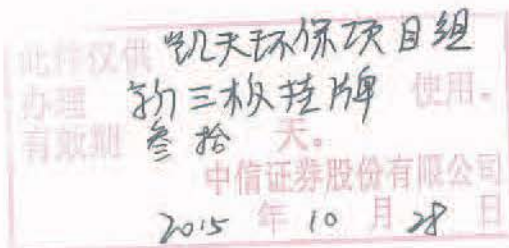 此件仅供 凯天环保项目组
办理 新三板挂牌 使用。
有效期 叁拾 天。
中信证券股份有限公司
2015 年 10 月 28 日